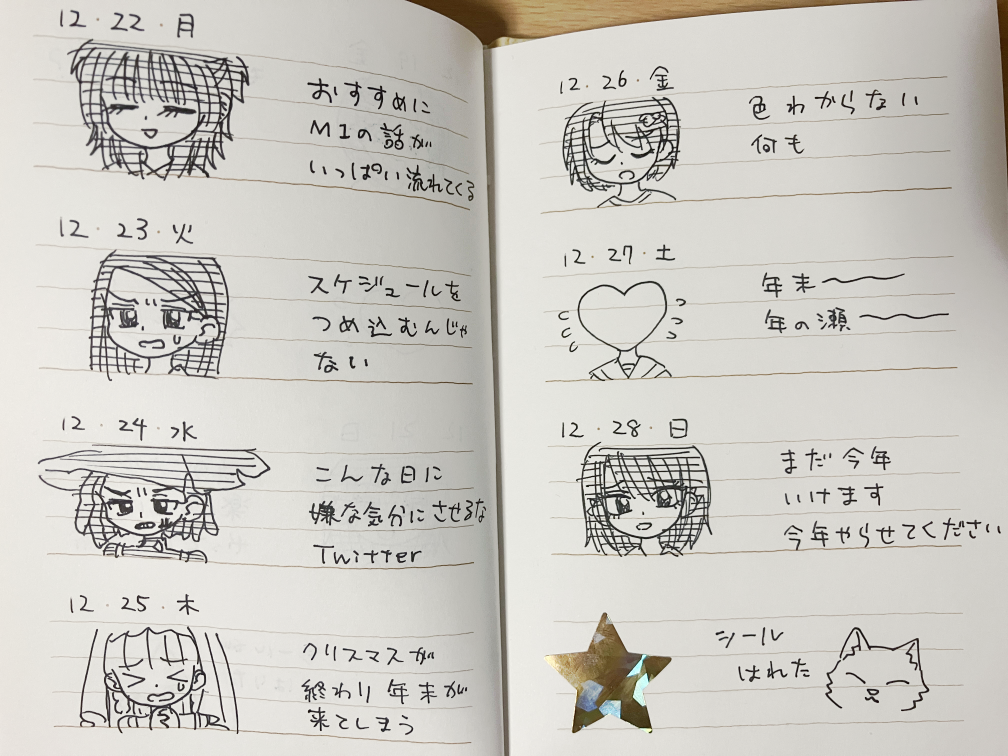 12・22・月
おすすめに
M1の話が
いっぱい流れてくる
12・23・火
スケジュールを
つめ込むんじゃ
ない
12・24・水
こんな日に
嫌な気分にさせるな
Twitter
12・25・木
クリスマスが
終わり年末が
来てしまう
12・26・金
色わからない
何も
12・27・土
年末〜〜
年の瀬〜〜
12・28・日
まだ今年
いけます
今年やらせてください
シール
はれた